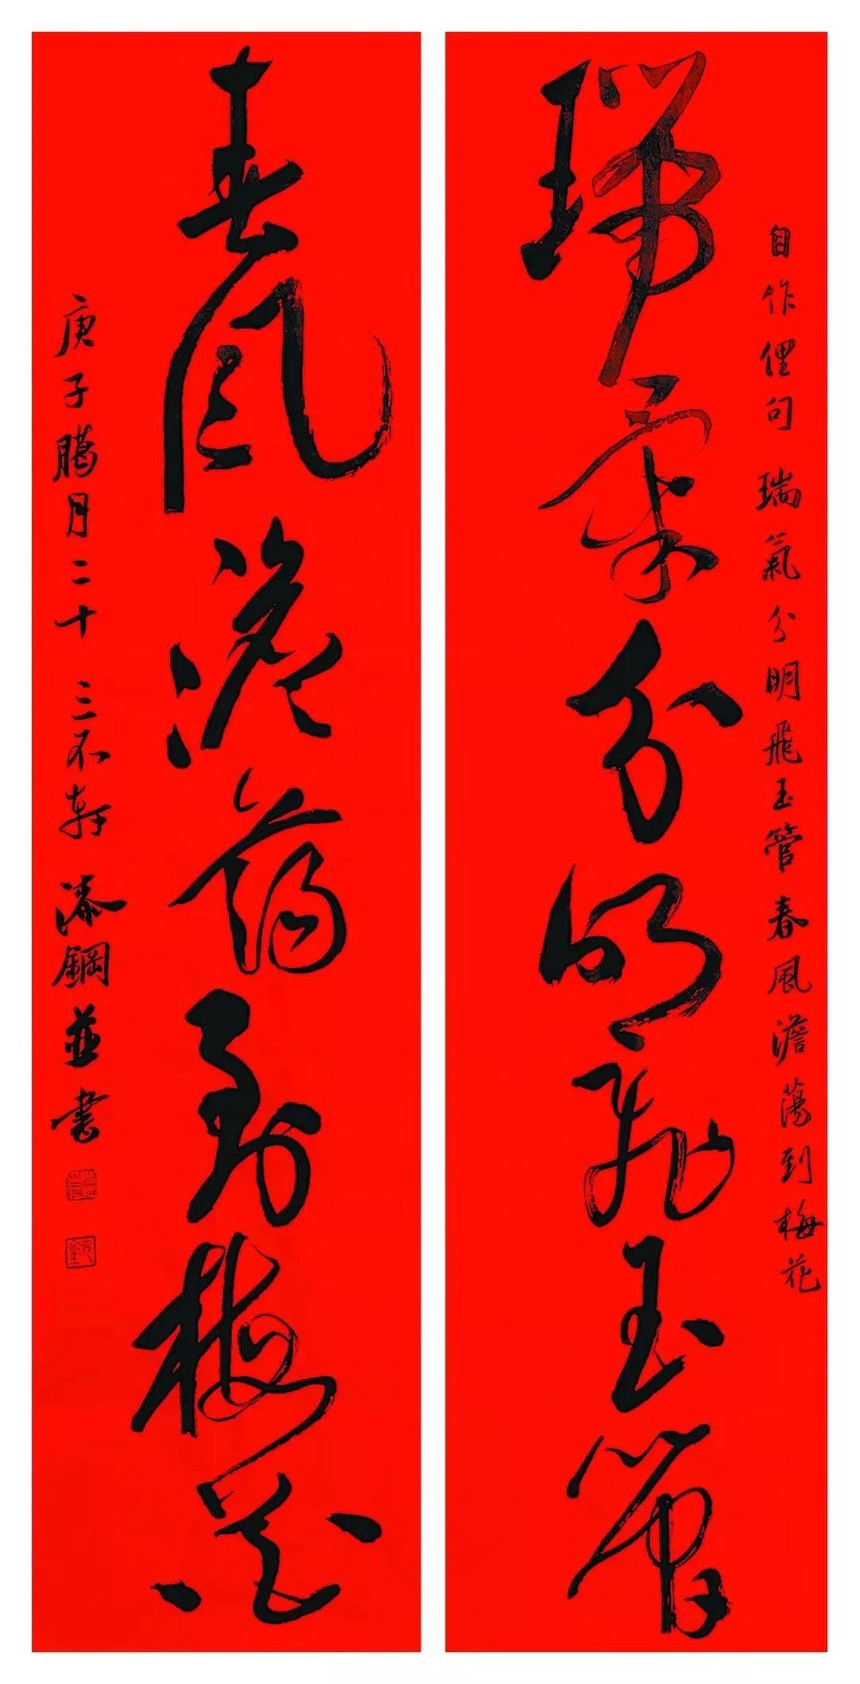 自作俚句 瑞氣分明飛玉管春風澹蕩到梅花
瑞氣分明飛玉管
春風澹蕩到梅花
庚子臈月二十 三不軒 漆鋼並書